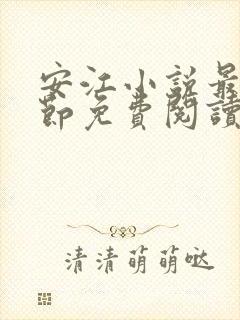 安江小说最
節免費閱讀
清清萌萌哒